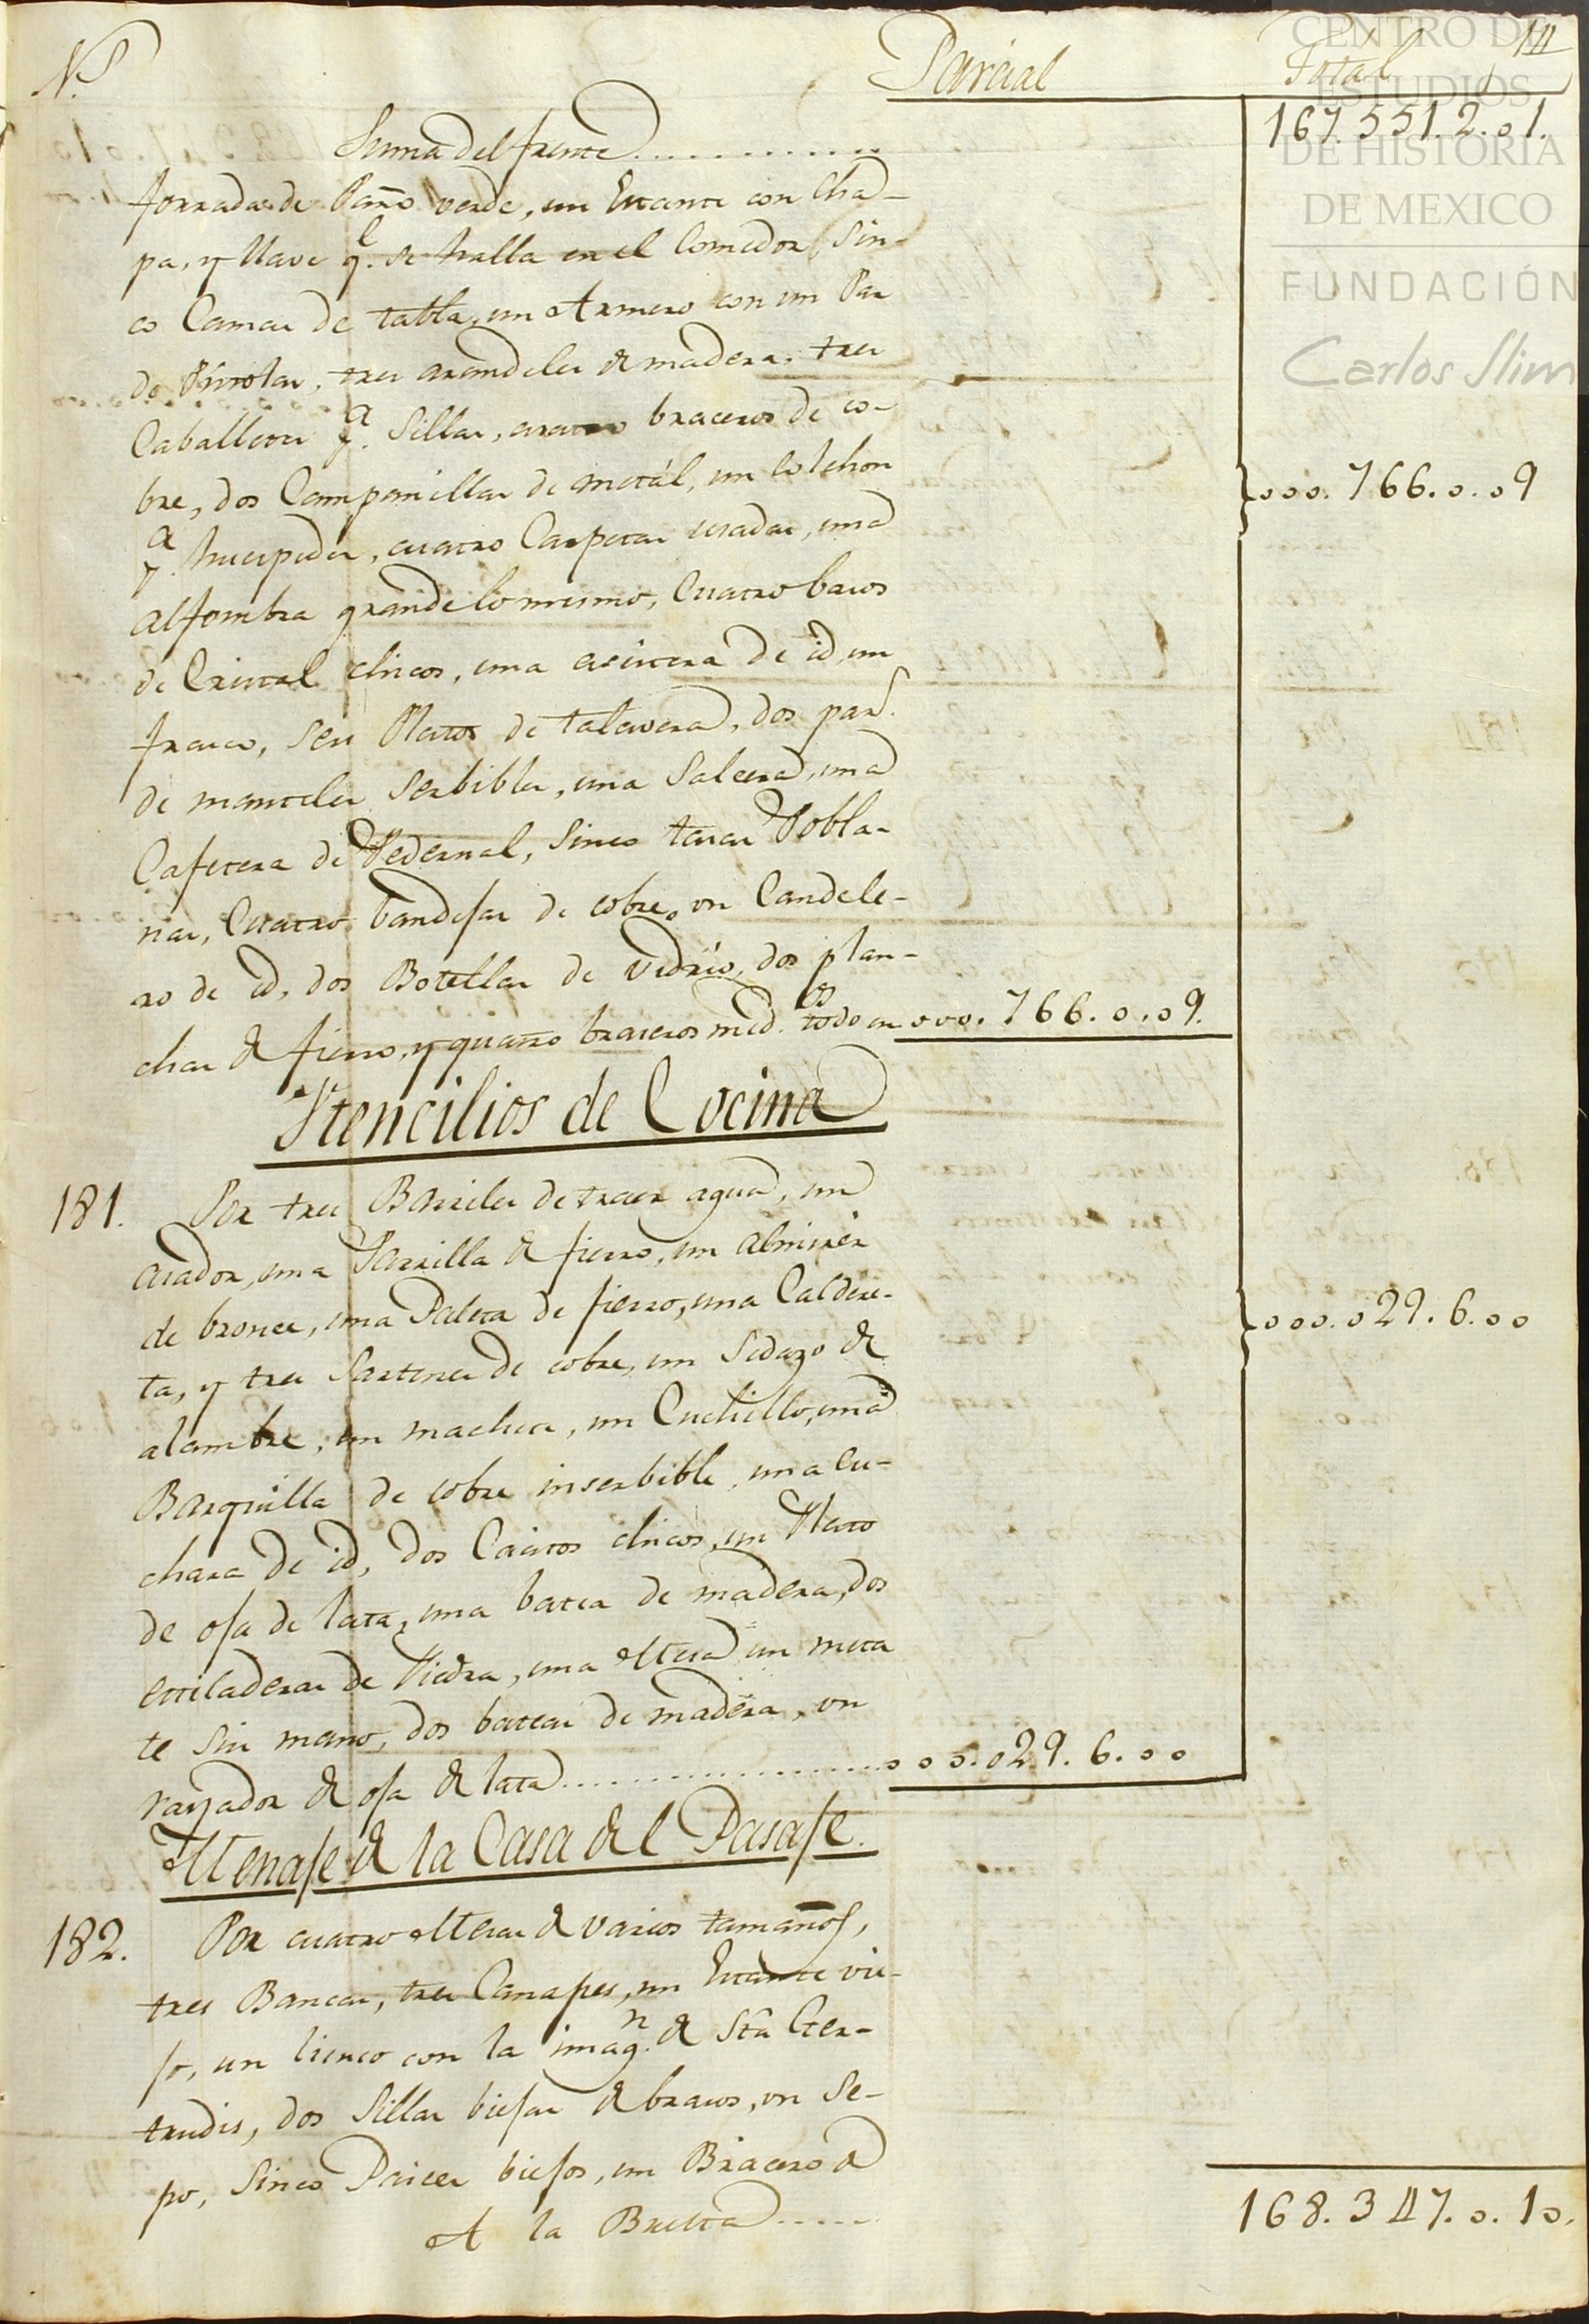 N.º Parcial Total
CENTRO DE
ESTUDIOS
DE HISTORIA
DE MEXICO
FUNDACIÓN
Carlos Slim
Suma del frente.............. 167.551.2.01.
forradas de Paño verde, un Estante con Cha-
pa, y llave q.e se halla en el Comedor, Sin-
co Camas de tabla, un Armero con un Par
de Pistolas, tres arandeles de madera, tres
Caballetes p.a Sillas, cuatro braceros de co-
bre, dos Campanillas de metál, un Colchon
p.a huespedes, cuatro Carpetas usadas, una
alfombra grande lo mismo, Cuatro basos
de Cristal chicos, una aseitera de id, un
frasco, seis Platos de talavera, dos par.s
de manteles serbibles, una Salera, una
Cafetera de Pedernal, Sinco tasas Pobla-
nas, Cuatro bandejas de cobre, vn Candele-
ro de id, dos Botellas de vidrio, dos plan-
chas de fierro, y quatro braceros med.os todo en 000.766.0.09.
}000.766.0.09
Itencilios de Cocina
181. Por tres Barriles de traer agua, un
asador, una Parrilla de fierro, un almirez
de bronce, una Paleta de fierro, una Caldere-
ta, y tres Sartenes de cobre, un Sedazo de
alambre, un machete, un Cuchillo, una
Barquilla de cobre inserbible, una Cu-
chara de id, dos Casitos chicos, un Plato
de oja de lata, una batea de madera, dos
estiladeras de Piedra, una Mesa un meta
te sin mano, dos bateas de madera, vn
rayador de oja de lata.................. 000.029.6.00
}000.029.6.00
Menaje de la Casa del Pasaje.
182. Por cuatro Mesas de varios tamaños,
tres Bancas, tres Canapes, un Estante vie-
jo, un lienzo con la imag.n de Sta Ger-
trudis, dos Sillas biejas de brasos, vn Se-
po, Sinco Paises biejos, un Bracero de
A la Buelta...... 168.347.0.10.